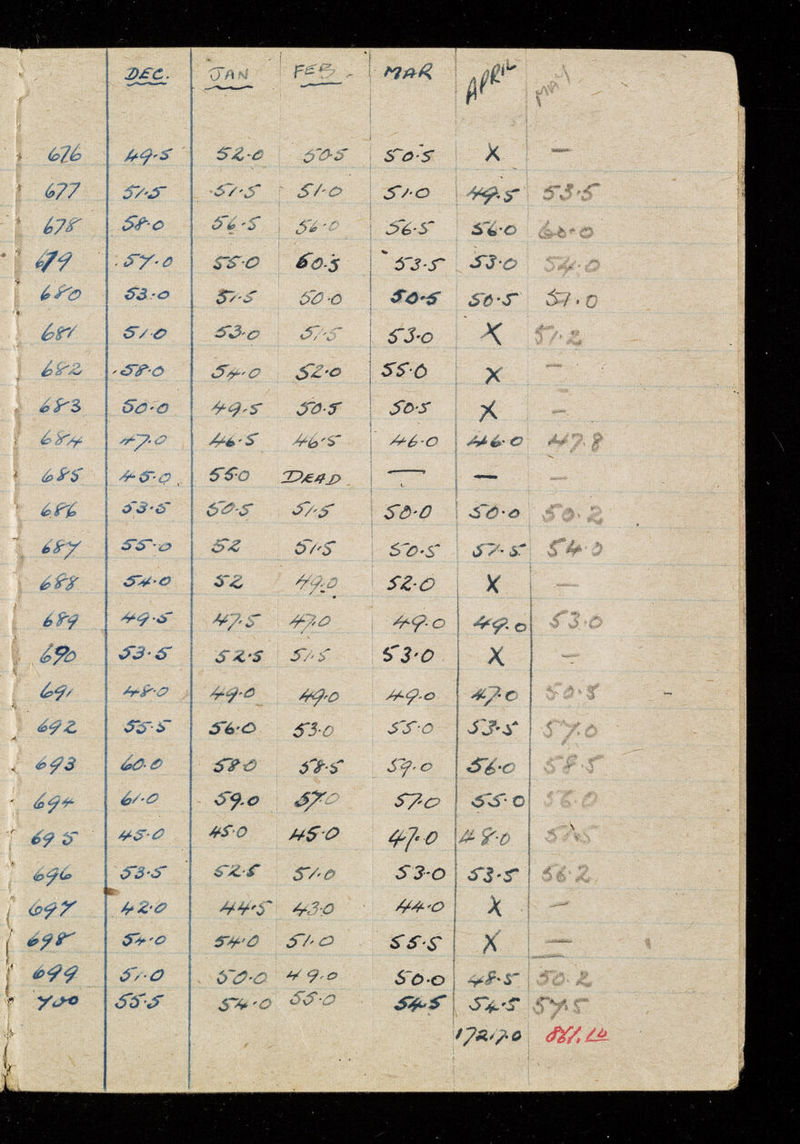 DEC. JAN FEB. MAR APRIL MAY
676 49.5 52.0 50.5 50.5 X —
677 51.5 51.5 51.0 51.0 49.5 53.5
678 58.0 56.5 56.0 56.5 56.0 60.0
679 57.0 55.0 60.5 53.5 53.0 54.0
680 53.0 51.5 50.0 50.5 50.5 51.0
681 51.0 53.0 51.5 53.0 X 51.2
682 58.0 54.0 52.0 55.0 X —
683 50.0 49.5 50.5 50.5 X —
684 47.0 46.5 46.5 46.0 46.0 47.8
685 45.0 55.0 DEAD — — —
686 53.5 50.5 51.5 50.0 50.0 50.2
687 55.0 52 51.5 50.5 51.5 54.0
688 54.0 52 49.0 52.0 X —
689 49.5 47.5 47.0 49.0 49.0 53.0
690 53.5 52.5 51.5 53.0 X —
691 48.0 49.0 49.0 49.0 47.0 50.5
692 55.5 56.0 53.0 55.0 53.5 57.0
693 60.0 58.0 58.5 59.0 56.0 58.5
694 61.0 59.0 57.0 57.0 55.0 56.0
695 45.0 45.0 45.0 47.0 48.0 51.5
696 53.5 52.5 51.0 53.0 53.5 56.2
697 42.0 44.5 43.0 44.0 X —
698 54.0 54.0 51.0 55.5 X —
699 51.0 50.0 49.0 50.0 48.5 50.2
700 55.5 54.0 55.0 54.5 54.5 57.5
861.10